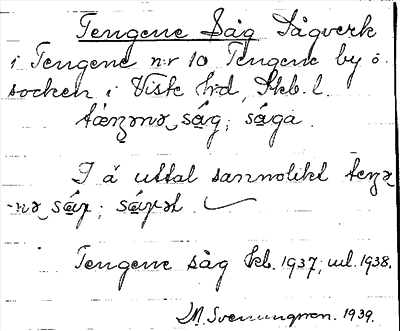 Tengene Såg Sågverk
i Tengene n:r 10 Tengene by o.
socken i Viste h:d, Skb. l.
såg; såga.
I ä uttal sannolikt
Tengene såg kb. 1937; ml. 1938.
M. Svenungsson. 1939.